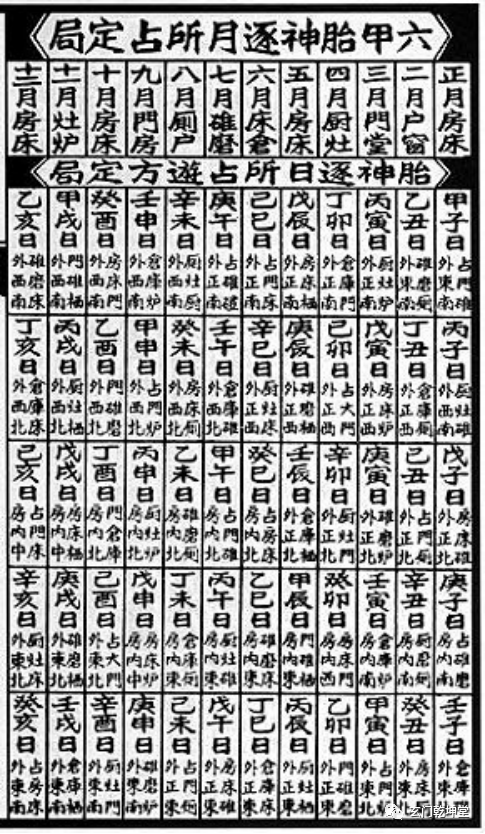 六甲胎神逐月所占定局
正月房床
二月户窗
三月門堂
四月厨灶
五月房床
六月床倉
七月碓磨
八月厠户
九月門房
十月房床
十一月灶炉
十二月房床
胎神逐日所占遊方定局
甲子日 占門碓 外東南
乙丑日 碓磨厠 外東南
丙寅日 厨灶炉 外正南
丁卯日 倉庫門 外正南
戊辰日 房床栖 外正南
己巳日 占門床 外正南
庚午日 占碓磨 外正南
辛未日 厨灶厠 外西南
壬申日 倉庫炉 外西南
癸酉日 房床門 外西南
甲戌日 門碓栖 外西南
乙亥日 碓磨床 外西南
丙子日 厨灶碓 外西南
丁丑日 倉庫厠 外正西
戊寅日 房床炉 外正西
己卯日 占大門 外正西
庚辰日 碓磨栖 外正西
辛巳日 厨灶床 外正西
壬午日 倉庫碓 外西北
癸未日 房床厠 外西北
甲申日 占門炉 外西北
乙酉日 門碓磨 外西北
丙戌日 厨灶栖 外西北
丁亥日 倉庫床 外西北
戊子日 房床碓 外正北
己丑日 占門厠 外正北
庚寅日 碓磨炉 外正北
辛卯日 厨灶門 外正北
壬辰日 倉庫栖 外正北
癸巳日 占房床 房内北
甲午日 占門碓 房内北
乙未日 碓磨厠 房内北
丙申日 厨灶炉 房内北
丁酉日 門倉庫 房内北
戊戌日 房床栖 房内中
己亥日 占門床 房内中
庚子日 占碓磨 房内南
辛丑日 厨磨厠 房内南
壬寅日 倉庫炉 房内南
癸卯日 房床門 房内西
甲辰日 門碓栖 房内東
乙巳日 碓磨床 房内東
丙午日 厨灶碓 房内東
丁未日 倉庫厠 房内東
戊申日 房床炉 房内中
己酉日 占大門 外東北
庚戌日 碓磨栖 外東北
辛亥日 厨灶床 外東北
壬子日 倉庫碓
癸丑日 房床厠
甲寅日 占門炉
乙卯日 門碓磨 外正東
丙辰日 厨灶栖 外正東
丁巳日 倉庫床 外正東
戊午日 房床碓 外正東
己未日 占門厠 外正東
庚申日 碓磨炉 外東南
辛酉日 厨灶門 外東南
壬戌日 倉庫栖 外東南
癸亥日 占房床 外東南
玄门乾坤堂